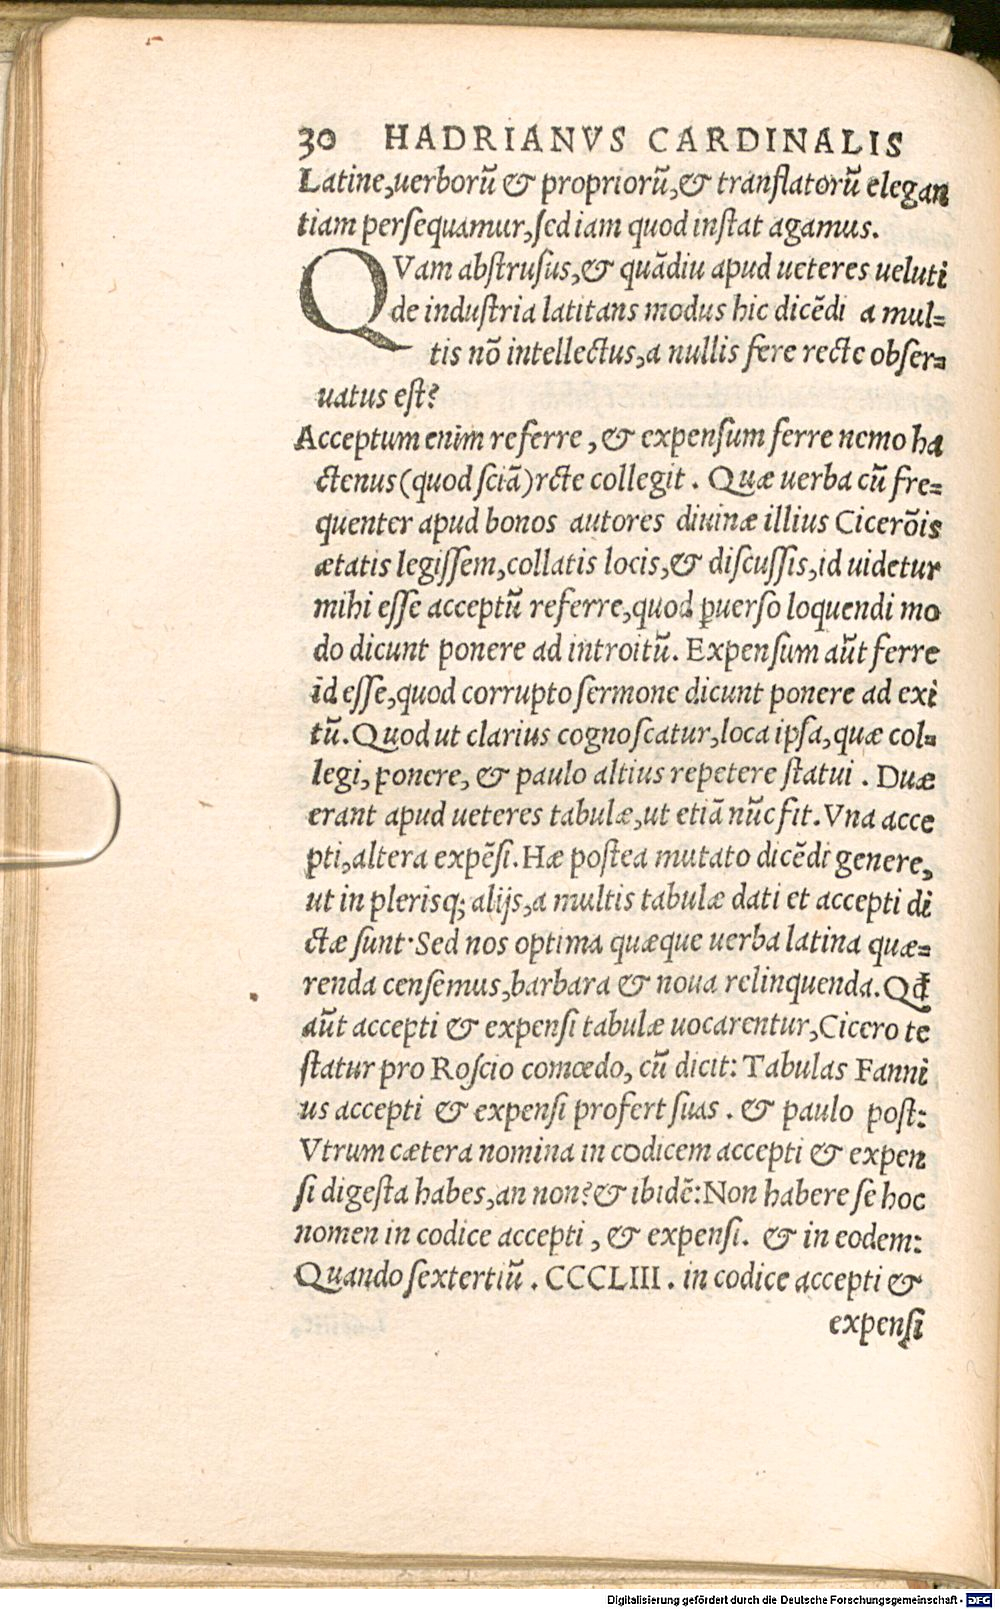 30 HADRIANVS CARDINALIS
Latine,uerborũ & propriorũ,& tranſlatorũ elegan
tiam perſequamur,ſed iam quod inſtat agamus.
QVam abſtruſus,& quãdiu apud ueteres ueluti
de induſtria latitans modus hic dicẽdi a mul=
tis nõ intellectus,a nullis fere recte obſer=
uatus eſt?
Acceptum enim referre, & expenſum ferre nemo ha
ctenus(quod ſciã)rcte collegit. Quæ uerba cũ fre=
quenter apud bonos autores diuinæ illius Cicerõis
ætatis legiſſem,collatis locis,& diſcuſſis,id uidetur
mihi eſſe acceptũ referre,quod ꝑuerſo loquendi mo
do dicunt ponere ad introitũ. Expenſum aũt ferre
id eſſe,quod corrupto ſermone dicunt ponere ad exi
tũ. Quod ut clarius cognoſcatur,loca ipſa,quæ col=
legi, ponere, & paulo altius repetere ſtatui. Duæ
erant apud ueteres tabulæ,ut etiã nũc fit. Vna acce
pti,altera expẽſi. Hæ poſtea mutato dicẽdi genere,
ut in plerisq; alijs,a multis tabulæ dati et accepti di
ctæ ſunt·Sed nos optima quæque uerba latina quæ=
renda cenſemus,barbara & noua relinquenda. Qđ
aũt accepti & expenſi tabulæ uocarentur,Cicero te
ſtatur pro Roſcio comœdo, cũ dicit: Tabulas Fanni
us accepti & expenſi profert ſuas. & paulo poſt:
Vtrum cætera nomina in codicem accepti & expen
ſi digeſta habes,an non?& ibidẽ:Non habere ſe hoc
nomen in codice accepti, & expenſi. & in eodem:
Quando ſextertiũ. CCCLIII. in codice accepti &
expenſi
Digitalisierung gefördert durch die Deutsche Forschungsgemeinschaft - DFG